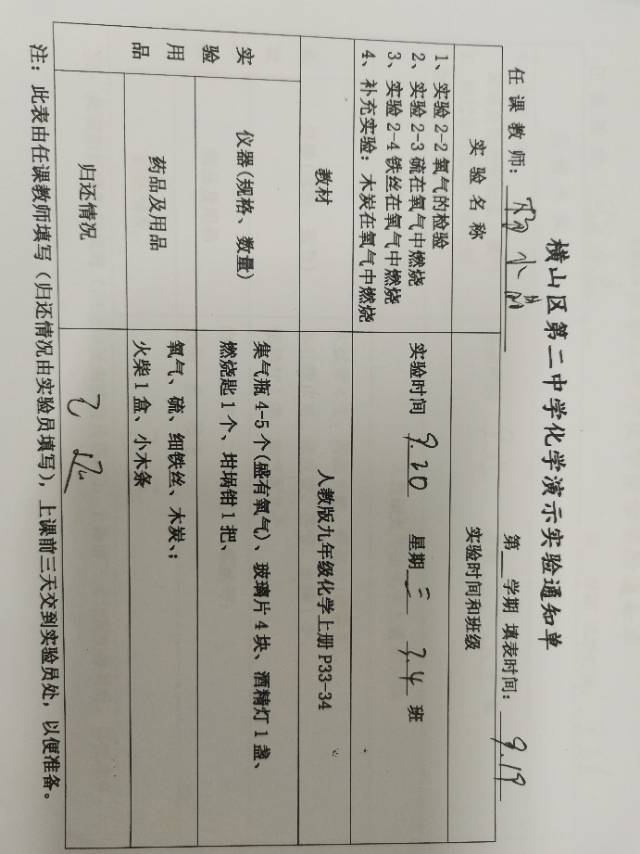 横山区第二中学化学演示实验通知单
任课教师： 小 第 学期 填表时间：9.19
实验名称 实验时间和班级
1、实验2-2氧气的检验
2、实验2-3硫在氧气中燃烧
3、实验2-4铁丝在氧气中燃烧
4、补充实验：木炭在氧气中燃烧
实验时间 9.20 星期三 3.4 班
教材 人教版九年级化学上册P33-34
实验用品
仪器(规格、数量) 集气瓶4-5个(盛有氧气)、玻璃片4块、酒精灯1盏、
燃烧匙1个、坩埚钳1把、
药品及用品 氧气、硫、细铁丝、木炭、；
火柴1盒、小木条
归还情况 已还
注：此表由任课教师填写（归还情况由实验员填写），上课前三天交到实验员处，以便准备。